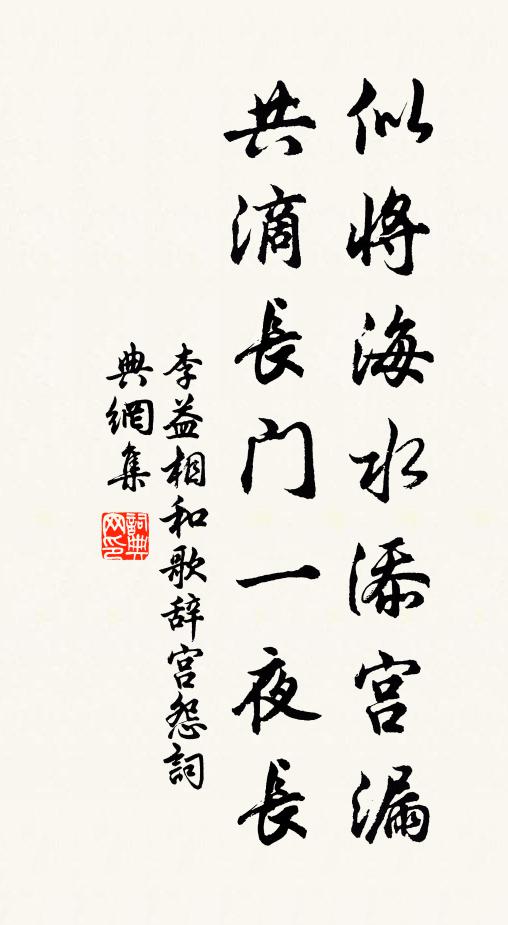 似將海水添宮漏
共滴長門一夜長
李益相和歌辞宮怨詞
典網集
詞典
网印